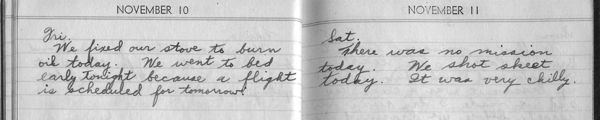 NOVEMBER 10
Fri.
We fixed our stove to burn
oil today. We went to bed
early tonight because a flight
is scheduled for tomorrow!
NOVEMBER 11
Sat.
There was no mission
today. We shot skeet
today. It was very chilly.